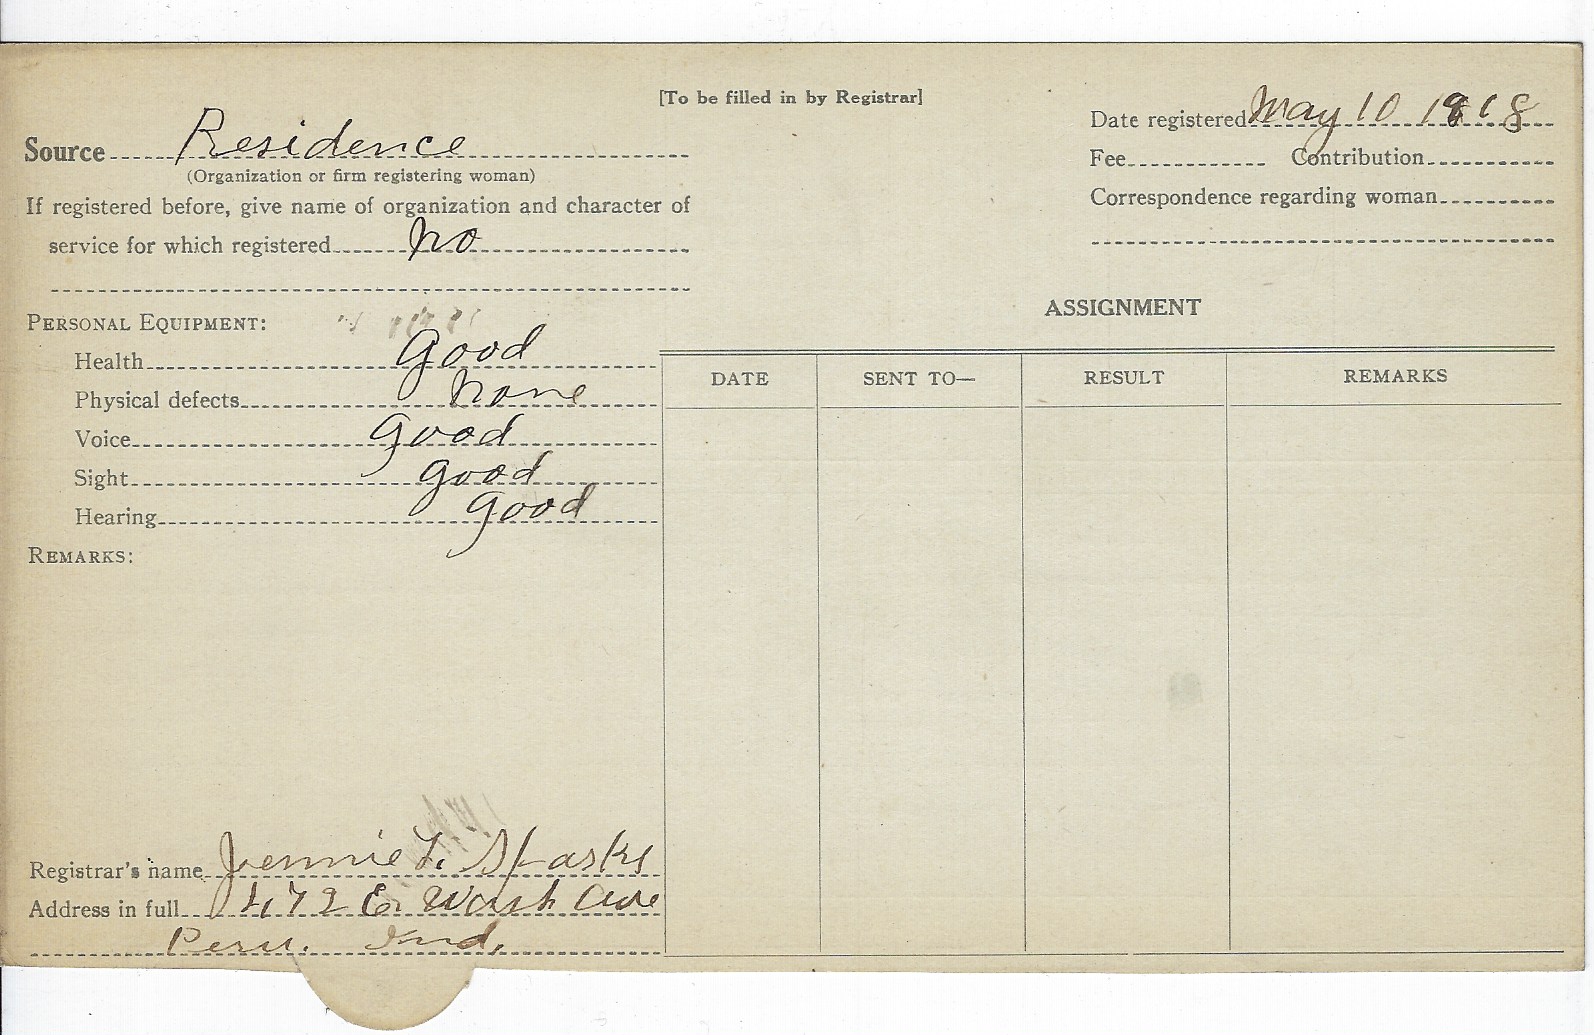 [To be filled in by Registrar]
Source Residence
(Organization or firm registering woman)
If registered before, give name of organization and character of
service for which registered no
Date registered May 10 1918
Fee Contribution
Correspondence regarding woman
PERSONAL EQUIPMENT:
Health Good
Physical defects none
Voice Good
Sight good
Hearing good
REMARKS:
ASSIGNMENT
DATE SENT TO— RESULT REMARKS
Registrar's name Jennie L. Sparks
Address in full 472 E. Wash Ave
Peru. Ind.